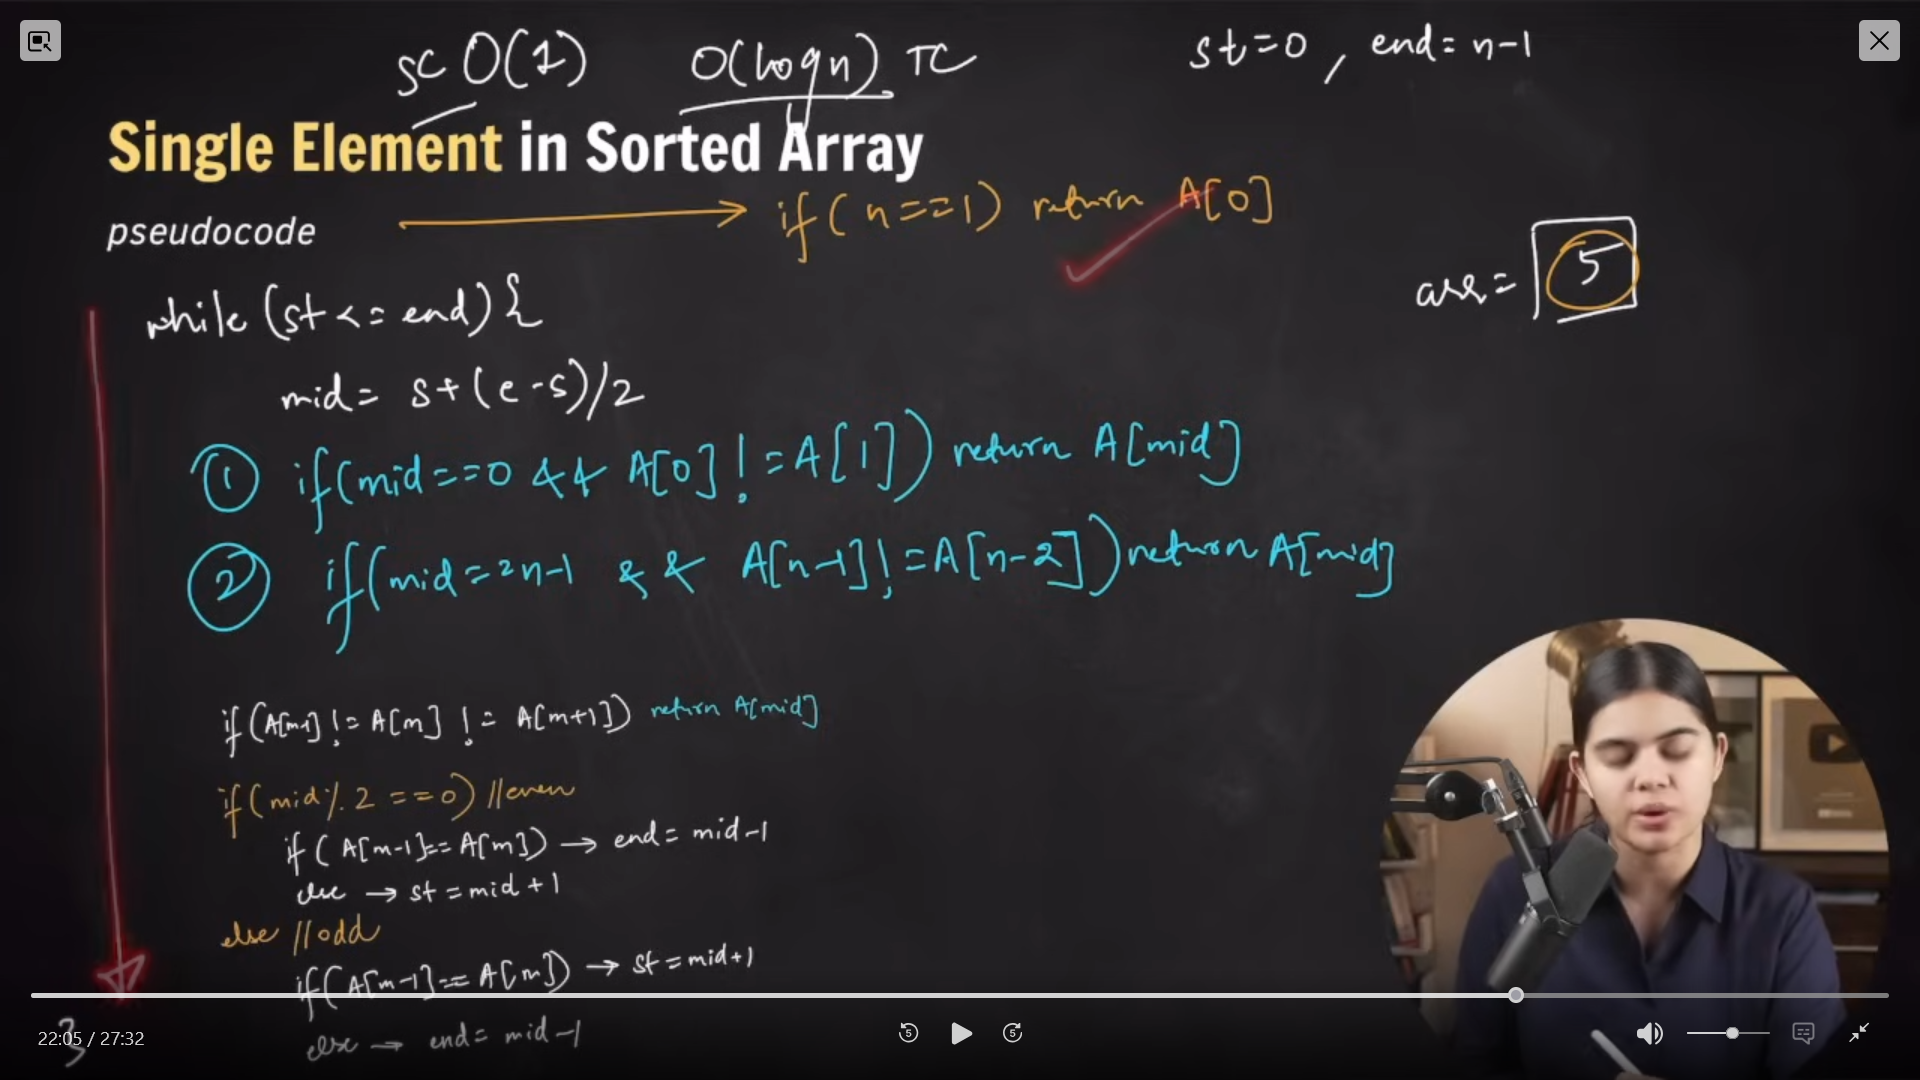 SC O(1) O(logn) TC
st=0, end=n-1
Single Element in Sorted Array
pseudocode → if(n==1) return A[0]
arr= 5
while (st<=end){
mid= s+(e-s)/2
1 if(mid==0 && A[0]!=A[1]) return A[mid]
2 if(mid==n-1 && A[n-1]!=A[n-2]) return A[mid]
if(A[m-1]!=A[m] != A[m+1]) return A[mid]
if(mid%2==0) //even
if(A[m-1]==A[m]) → end=mid-1
else → st=mid+1
else //odd
if(A[m-1]==A[m]) → st=mid+1
else → end=mid-1
}
22:05 / 27:32
5
5